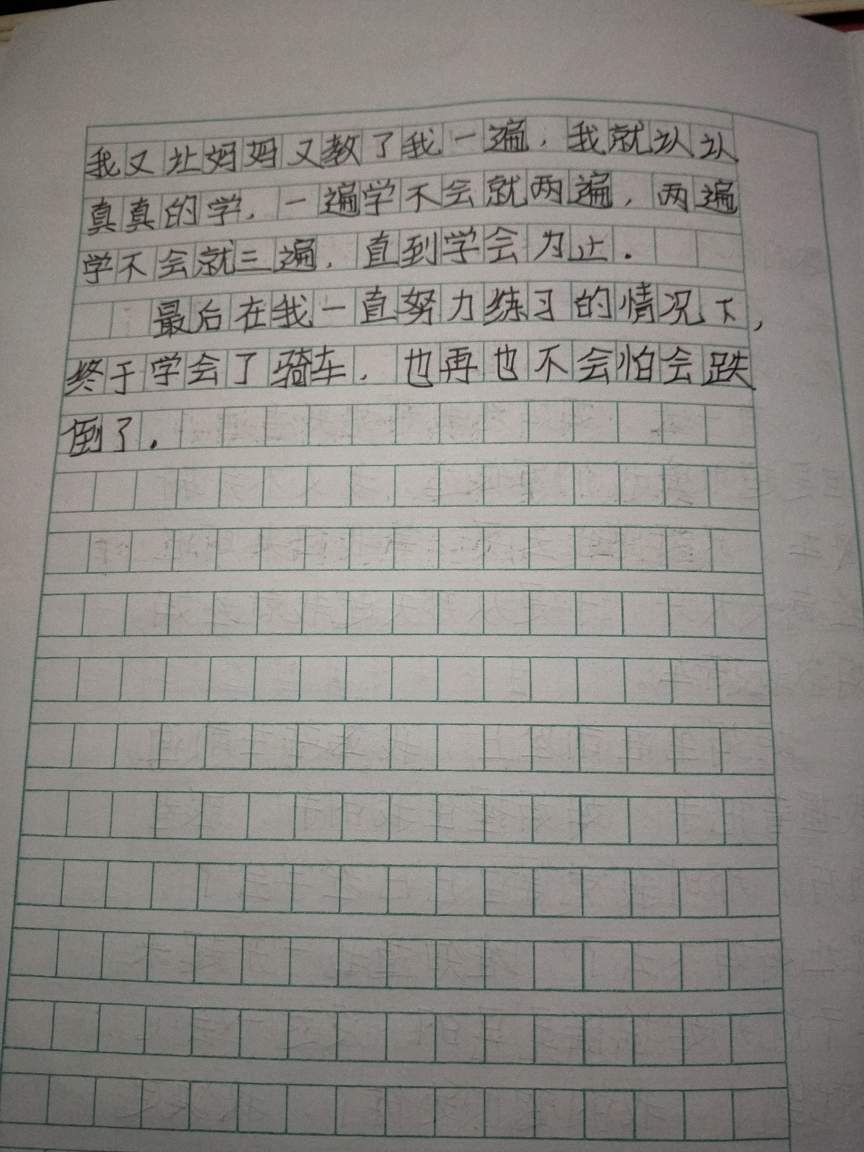 我又让妈妈又教了我一遍，我就认认
真真的学，一遍学不会就两遍，两遍
学不会就三遍，直到学会为止.
最后在我一直努力练习的情况下，
终于学会了骑车，也再也不会怕会跌
倒了.